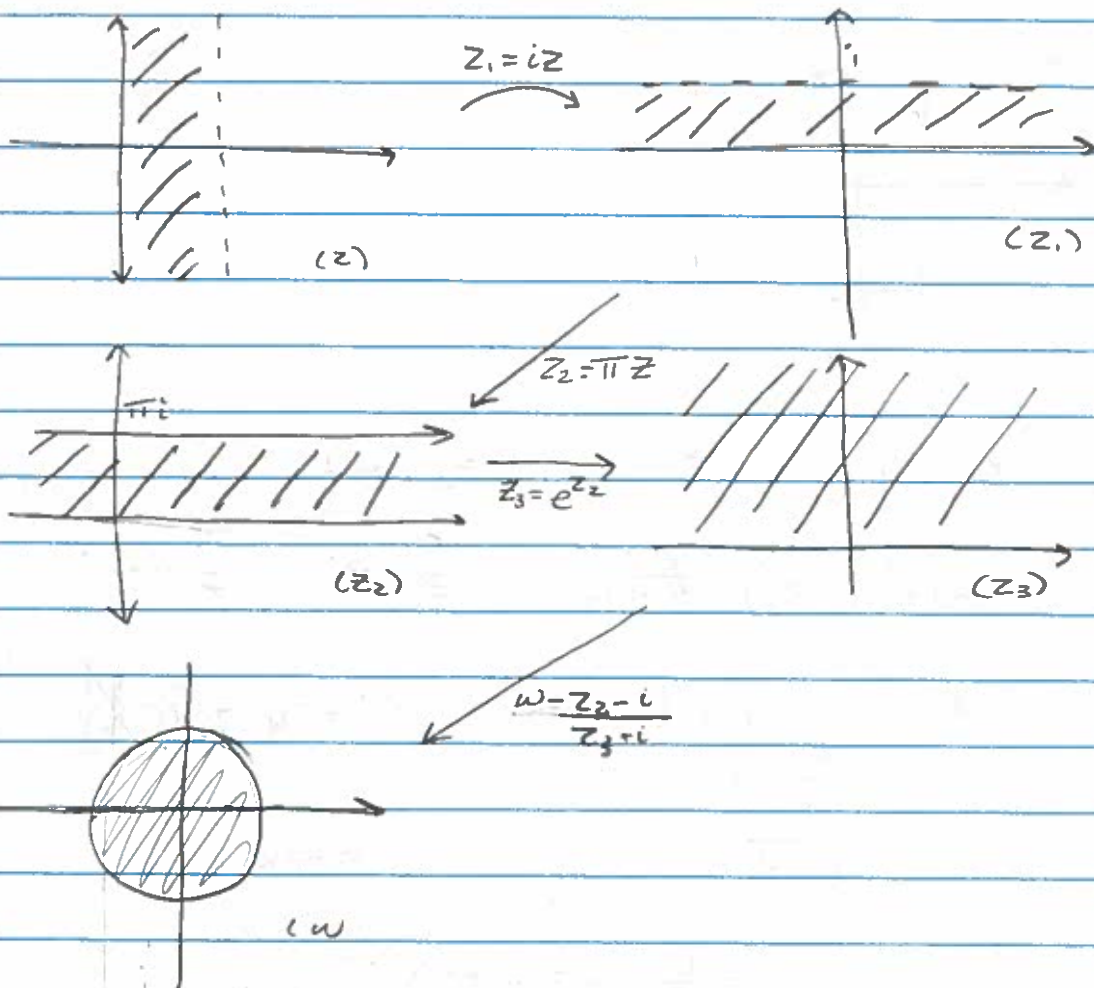 z₁ = iz
i
(z)
(z₁)
z₂ = πz
πi
z₃ = e^z₂
(z₂)
(z₃)
w - z₂ - i
z₃ + i
(w